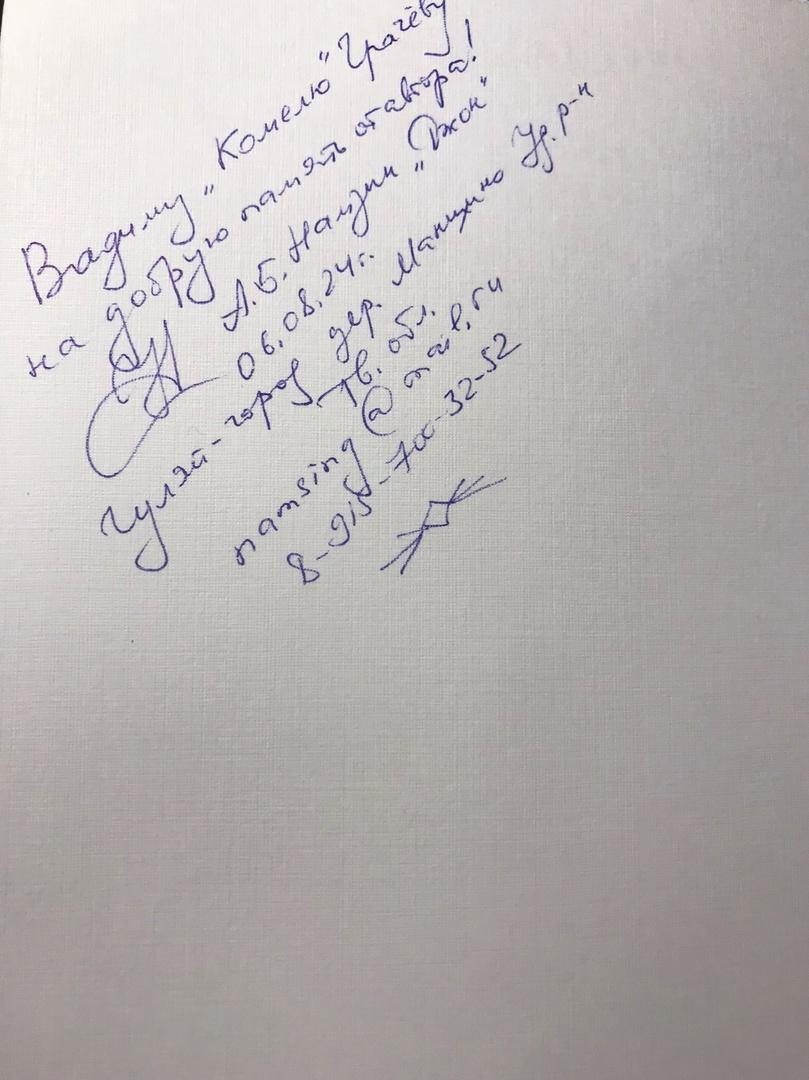 Вадиму „Комелю" Грачёву
на добрую память от автора!
А.Б. Намзин „Джон"
06.08.24г.
Гуляй-город дер. Мањино Уд. р-н
Тв. обл.
namsing@mail.ru
8-915-700-32-52